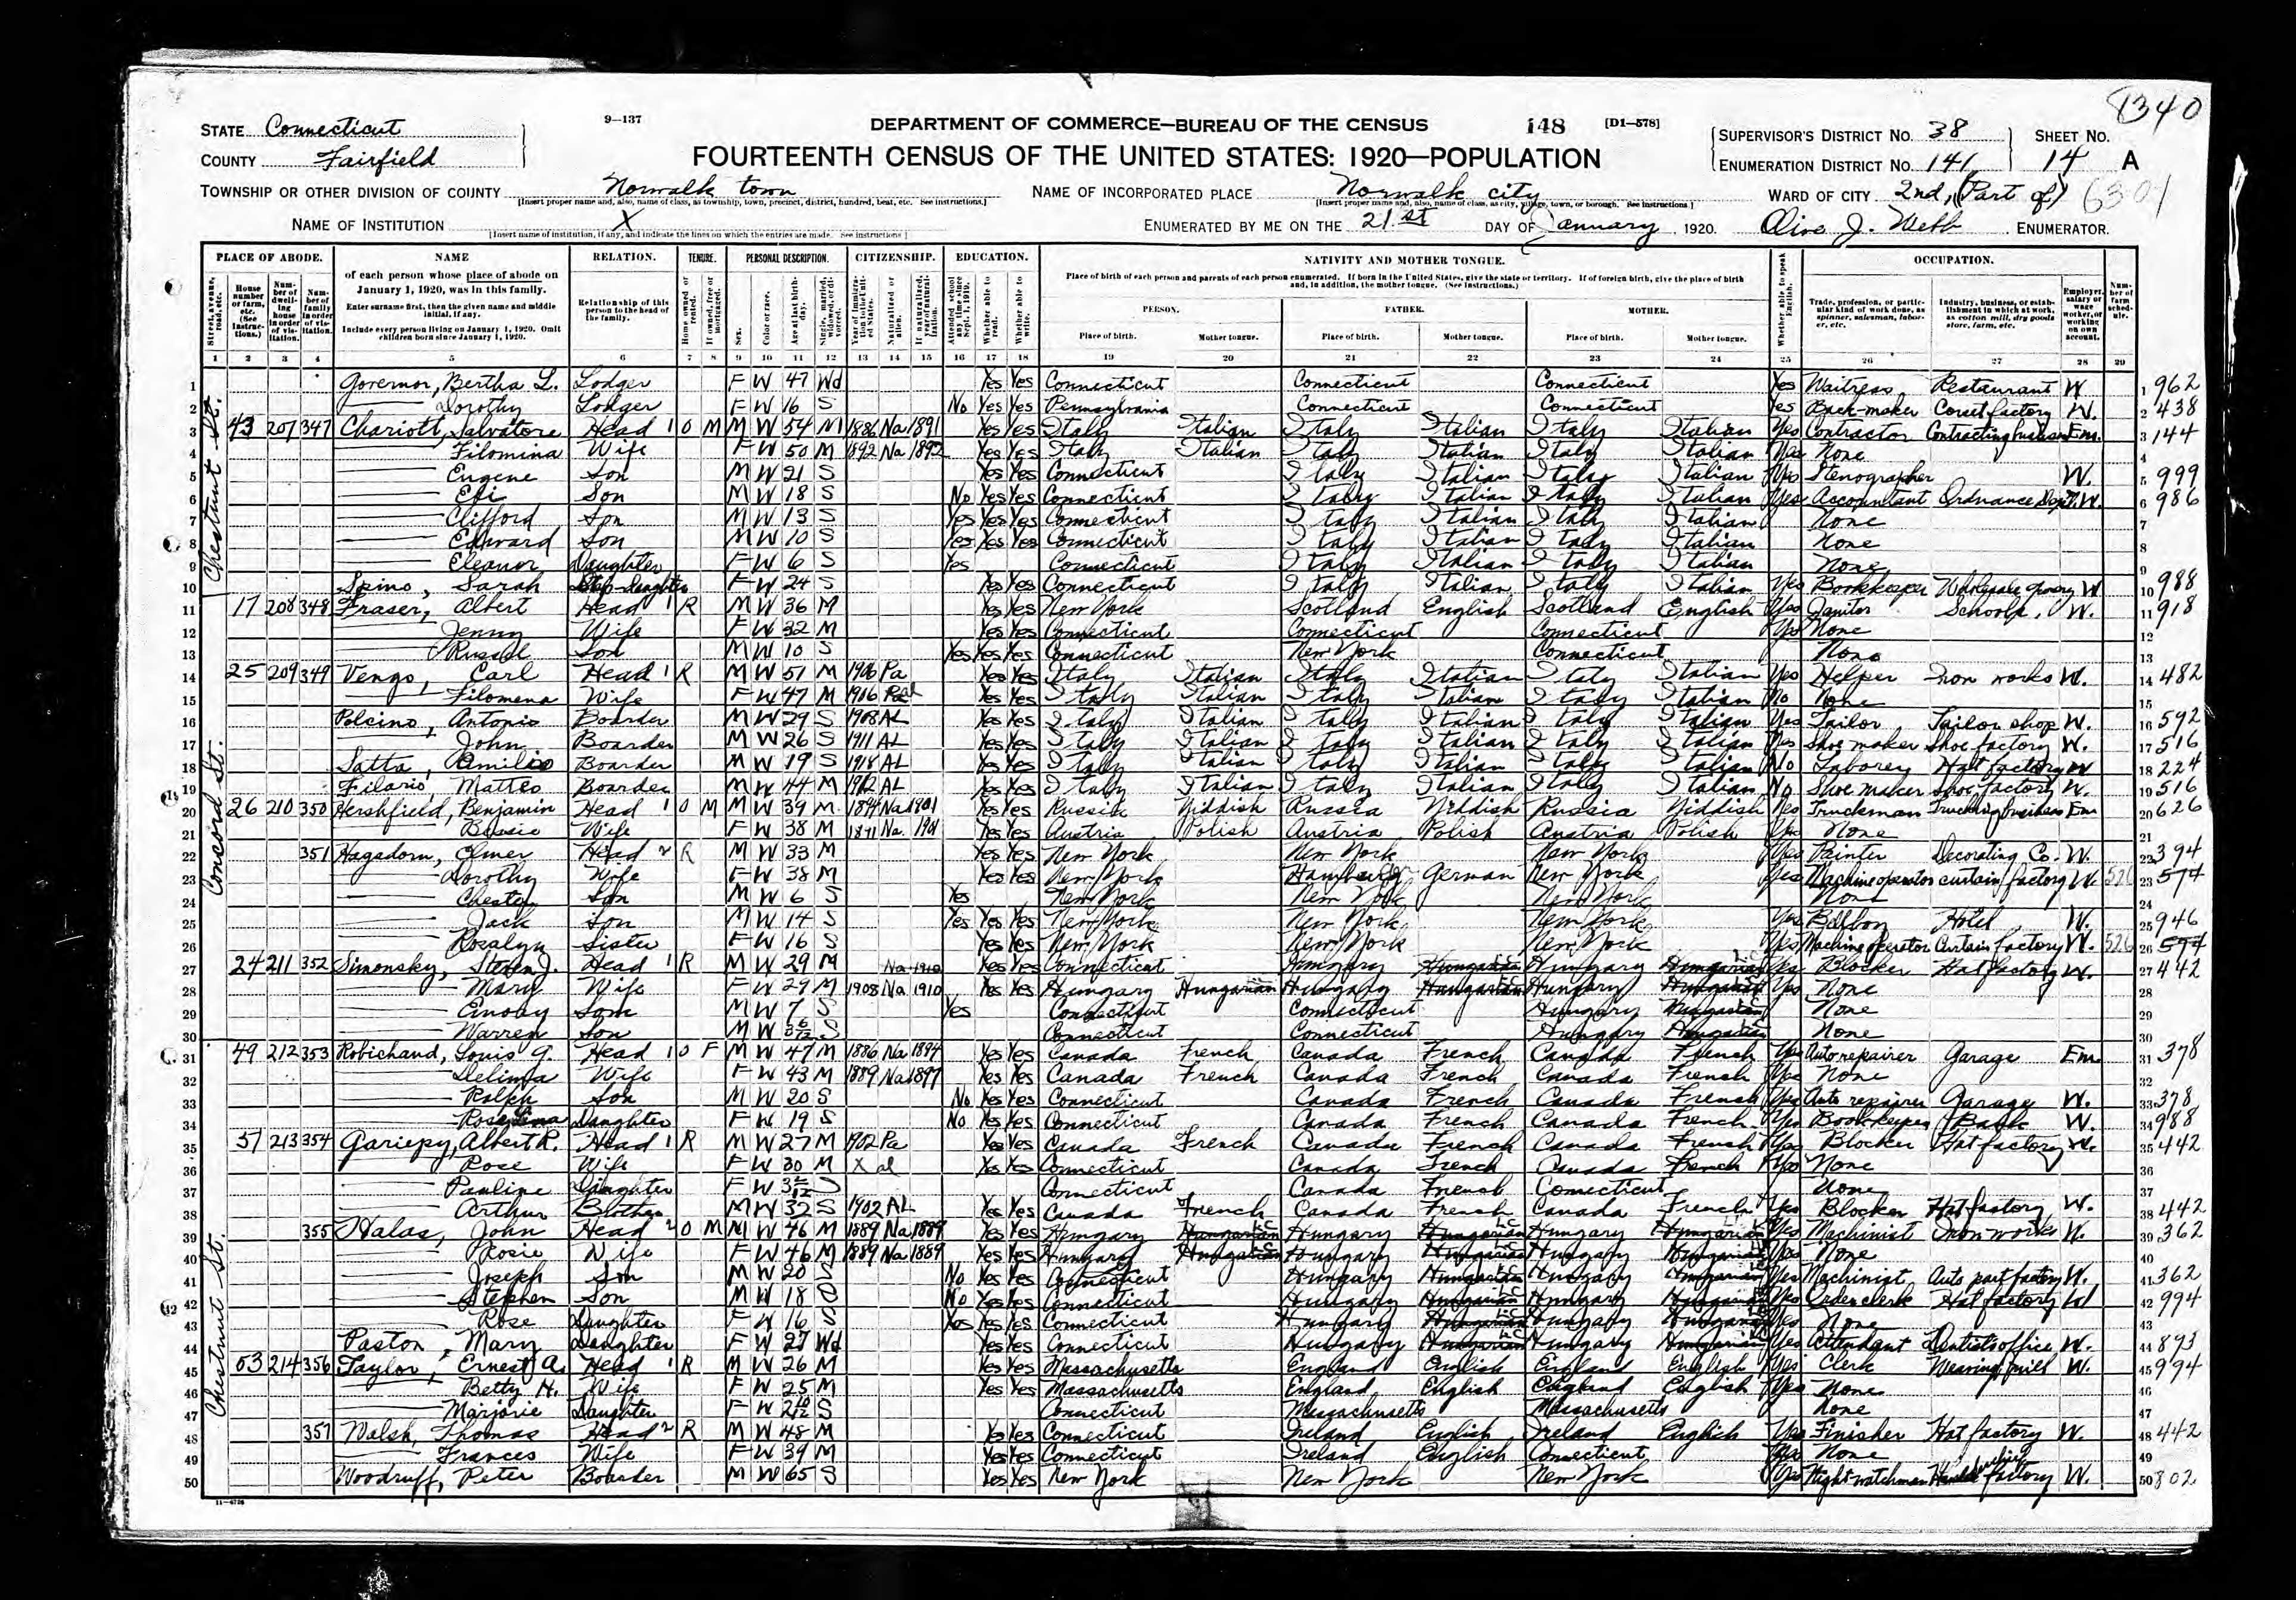 1340
STATE Connecticut 9—137 DEPARTMENT OF COMMERCE—BUREAU OF THE CENSUS 148 [D1—578] SUPERVISOR'S DISTRICT NO. 38 SHEET NO.
COUNTY Fairfield FOURTEENTH CENSUS OF THE UNITED STATES: 1920—POPULATION ENUMERATION DISTRICT NO. 141 14 A
TOWNSHIP OR OTHER DIVISION OF COUNTY Norwalk town NAME OF INCORPORATED PLACE Norwalk city WARD OF CITY 2nd, (Part of)
[Insert proper name and, also, name of class, as township, town, precinct, district, hundred, beat, etc. See instructions.] [Insert proper name and, also, name of class, as city, village, town, or borough. See instructions.]
NAME OF INSTITUTION X ENUMERATED BY ME ON THE 21st DAY OF January, 1920. Olive J. Webb ENUMERATOR.
[Insert name of institution, if any, and indicate the lines on which the entries are made. See instructions.]
PLACE OF ABODE. NAME RELATION. TENURE. PERSONAL DESCRIPTION. CITIZENSHIP. EDUCATION. NATIVITY AND MOTHER TONGUE. OCCUPATION.
1 2 3 4 5 6 7 8 9 10 11 12 13 14 15 16 17 18 19 20 21 22 23 24 25 26 27 28 29
Chestnut St.
1 Governor, Bertha L. Lodger F W 47 Wd Yes Yes Connecticut Connecticut Connecticut Yes Waitress Restaurant W 1 962
2 Dorothy Lodger F W 16 S No Yes Yes Pennsylvania Connecticut Connecticut Yes Corset factory W. 2 438
3 43 207 347 Chariott, Salvatore Head 1 O M M W 54 M 1886 Na 1891 Yes Yes Italy Italian Italy Italian Italy Italian Yes Contractor Contracting business Em. 3 144
4 Filomina Wife F W 50 M 1892 Na 1892 Yes Yes Italy Italian Italy Italian Italy Italian Yes None 4
5 Eugene Son M W 21 S Yes Yes Connecticut Italy Italian Italy Italian Yes Stenographer W. 5 999
6 Son M W 18 S No Yes Yes Connecticut Italy Italian Italy Italian Yes Accountant Ordnance Dept. W. 6 986
7 Clifford Son M W 13 S Yes Yes Yes Connecticut Italy Italian Italy Italian None 7
8 Edward Son M W 10 S Yes Yes Yes Connecticut Italy Italian Italy Italian None 8
9 Eleanor Daughter F W 6 S Yes Connecticut Italy Italian Italy Italian None 9
10 Spino, Sarah Step-daughter F W 24 S Yes Yes Connecticut Italy Italian Italy Italian Yes Bookkeeper Wholesale grocery W 10 988
11 17 208 348 Fraser, Albert Head 1 R M W 36 M Yes Yes New York Scotland English Scotland English Yes Janitor Schools. W. 11 918
12 Jenny Wife F W 32 M Yes Yes Connecticut Connecticut Connecticut Yes None 12
13 Russel Son M W 10 S Yes Yes Yes Connecticut New York Connecticut None 13
Concord St.
14 25 209 349 Vengo, Carl Head 1 R M W 51 M 1906 Pa Yes Yes Italy Italian Italy Italian Italy Italian Yes Helper Iron works W. 14 482
15 Filomena Wife F W 47 M 1916 Yes Yes Italy Italian Italy Italian Italy Italian No None 15
16 Polcino, Antonio Boarder M W 29 S 1908 AL Yes Yes Italy Italian Italy Italian Italy Italian Yes Tailor Tailor shop W. 16 592
17 John Boarder M W 26 S 1911 AL Yes Yes Italy Italian Italy Italian Italy Italian Yes Shoe maker Shoe factory W. 17 516
18 Satta, Emilio Boarder M W 19 S 1918 AL Yes Yes Italy Italian Italy Italian Italy Italian No Laborer Hat factory W 18 224
19 Filario, Matteo Boarder M W 44 M 1912 AL Yes Yes Italy Italian Italy Italian Italy Italian No Shoe maker Shoe factory W. 19 516
20 26 210 350 Hershfield, Benjamin Head 1 O M M W 39 M 1894 Na 1901 Yes Yes Russia Yiddish Russia Yiddish Russia Yiddish Yes Truckman Trucking business Em 20 626
21 Bessie Wife F W 38 M Na 1901 Yes Yes Austria Polish Austria Polish Austria Polish Yes None 21
22 351 Hagadorn, Elmer Head 2 R M W 33 M Yes Yes New York New York New York Yes Painter Decorating Co. W. 22 394
23 Dorothy Wife F W 38 M Yes Yes New York German New York Yes Machine operator curtain factory W. 526 23 574
24 Chester Son M W 6 S Yes New York New York New York None 24
25 Jack Son M W 14 S Yes Yes Yes New York New York New York Yes Bellboy Hotel W. 25 946
26 Rosalyn Sister F W 16 S Yes Yes New York New York New York Yes Machine operator Curtain factory W. 526 26 574
27 24 211 352 Simonsky, Steven J. Head 1 R M W 29 M Na 1910 Yes Yes Connecticut Hungary Hungarian Hungary Hungarian Yes Blocker Hat factory W. 27 442
28 Mary Wife F W 29 M 1908 Na 1910 Yes Yes Hungary Hungarian Hungary Hungarian Hungary Hungarian Yes None 28
29 Son M W 7 S Yes Connecticut Connecticut Hungary Hungarian None 29
30 Warren Son M W S Connecticut Connecticut Hungary Hungarian None 30
Chestnut St.
31 49 212 353 Robichaud, Louis G. Head 1 O F M W 47 M 1886 Na 1894 Yes Yes Canada French Canada French Canada French Yes Auto repairer Garage Em. 31 378
32 Delima Wife F W 43 M 1889 Na 1897 Yes Yes Canada French Canada French Canada French Yes None 32
33 Ralph Son M W 20 S No Yes Yes Connecticut Canada French Canada French Yes Auto repairer Garage W. 33 378
34 Rose Lima Daughter F W 19 S No Yes Yes Connecticut Canada French Canada French Yes Bookkeeper Bank W. 34 988
35 51 213 354 Gariepy, Albert R. Head 1 R M W 27 M 1902 Pa Yes Yes Canada French Canada French Canada French Yes Blocker Hat factory W. 35 442
36 Rose Wife F W 30 M X al Yes Yes Connecticut Canada French Canada French Yes None 36
37 Pauline Daughter F W 3 2/12 S Connecticut Canada French Connecticut None 37
38 Arthur Brother M W 32 S 1902 AL Yes Yes Canada French Canada French Canada French Yes Blocker Hat factory W. 38 442
39 355 Halas, John Head 2 O M M W 46 M 1889 Na 1889 Yes Yes Hungary Hungarian Hungary Hungarian Hungary Hungarian Yes Machinist Iron works W. 39 362
40 Rosie Wife F W 46 M 1889 Na 1889 Yes Yes Hungary Hungarian Hungary Hungarian Hungary Hungarian Yes None 40
41 Joseph Son M W 20 S No Yes Yes Connecticut Hungary Hungarian Hungary Hungarian Yes Machinist Auto part factory W. 41 362
42 Stephen Son M W 18 S No Yes Yes Connecticut Hungary Hungarian Hungary Hungarian Yes Order clerk Hat factory W 42 994
43 Rose Daughter F W 16 S Yes Yes Yes Connecticut Hungary Hungarian Hungary Hungarian Yes None 43
44 Paston, Mary Daughter F W 27 Wd Yes Yes Connecticut Hungary Hungarian Hungary Hungarian Yes Attendant Dentists office W. 44 893
45 53 214 356 Taylor, Ernest A. Head 1 R M W 26 M Yes Yes Massachusetts England English England English Yes Clerk Weaving mill W. 45 994
46 Betty H. Wife F W 25 M Yes Yes Massachusetts England English England English Yes None 46
47 Marjorie Daughter F W 2 10/12 S Connecticut Massachusetts Massachusetts None 47
48 357 Walsh, Thomas Head 2 R M W 48 M Yes Yes Connecticut Ireland English Ireland English Yes Finisher Hat factory W. 48 442
49 Frances Wife F W 39 M Yes Yes Connecticut Ireland English Connecticut Yes None 49
50 Woodruff, Peter Boarder M W 65 S Yes Yes New York New York New York Yes Night watchman factory W. 50 802
11—4726